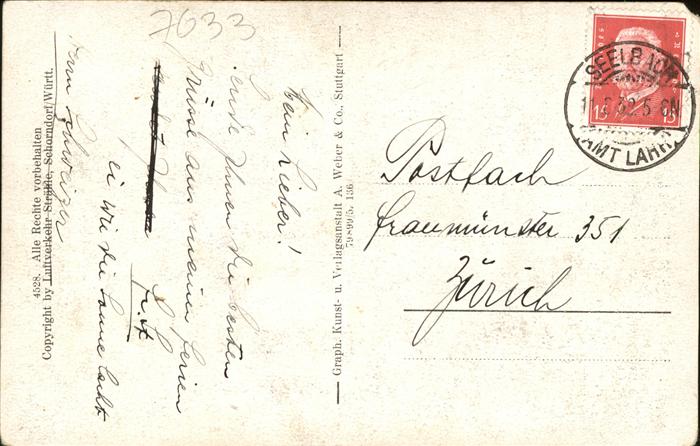 7633
Mein Lieber!
sende Ihnen die besten
Grüsse aus meinen Ferien
ei wie die Sonne lacht
Schweizer
4528. Alle Rechte vorbehalten
Copyright by Luftverkehr Strähle, Schorndorf/Württ.
Graph. Kunst- u. Verlagsanstalt A. Weber & Co., Stuttgart
79890/5, 136
Postfach
Fraumünster 351
Zürich
SEELBACH
AMT LAHR
15 15